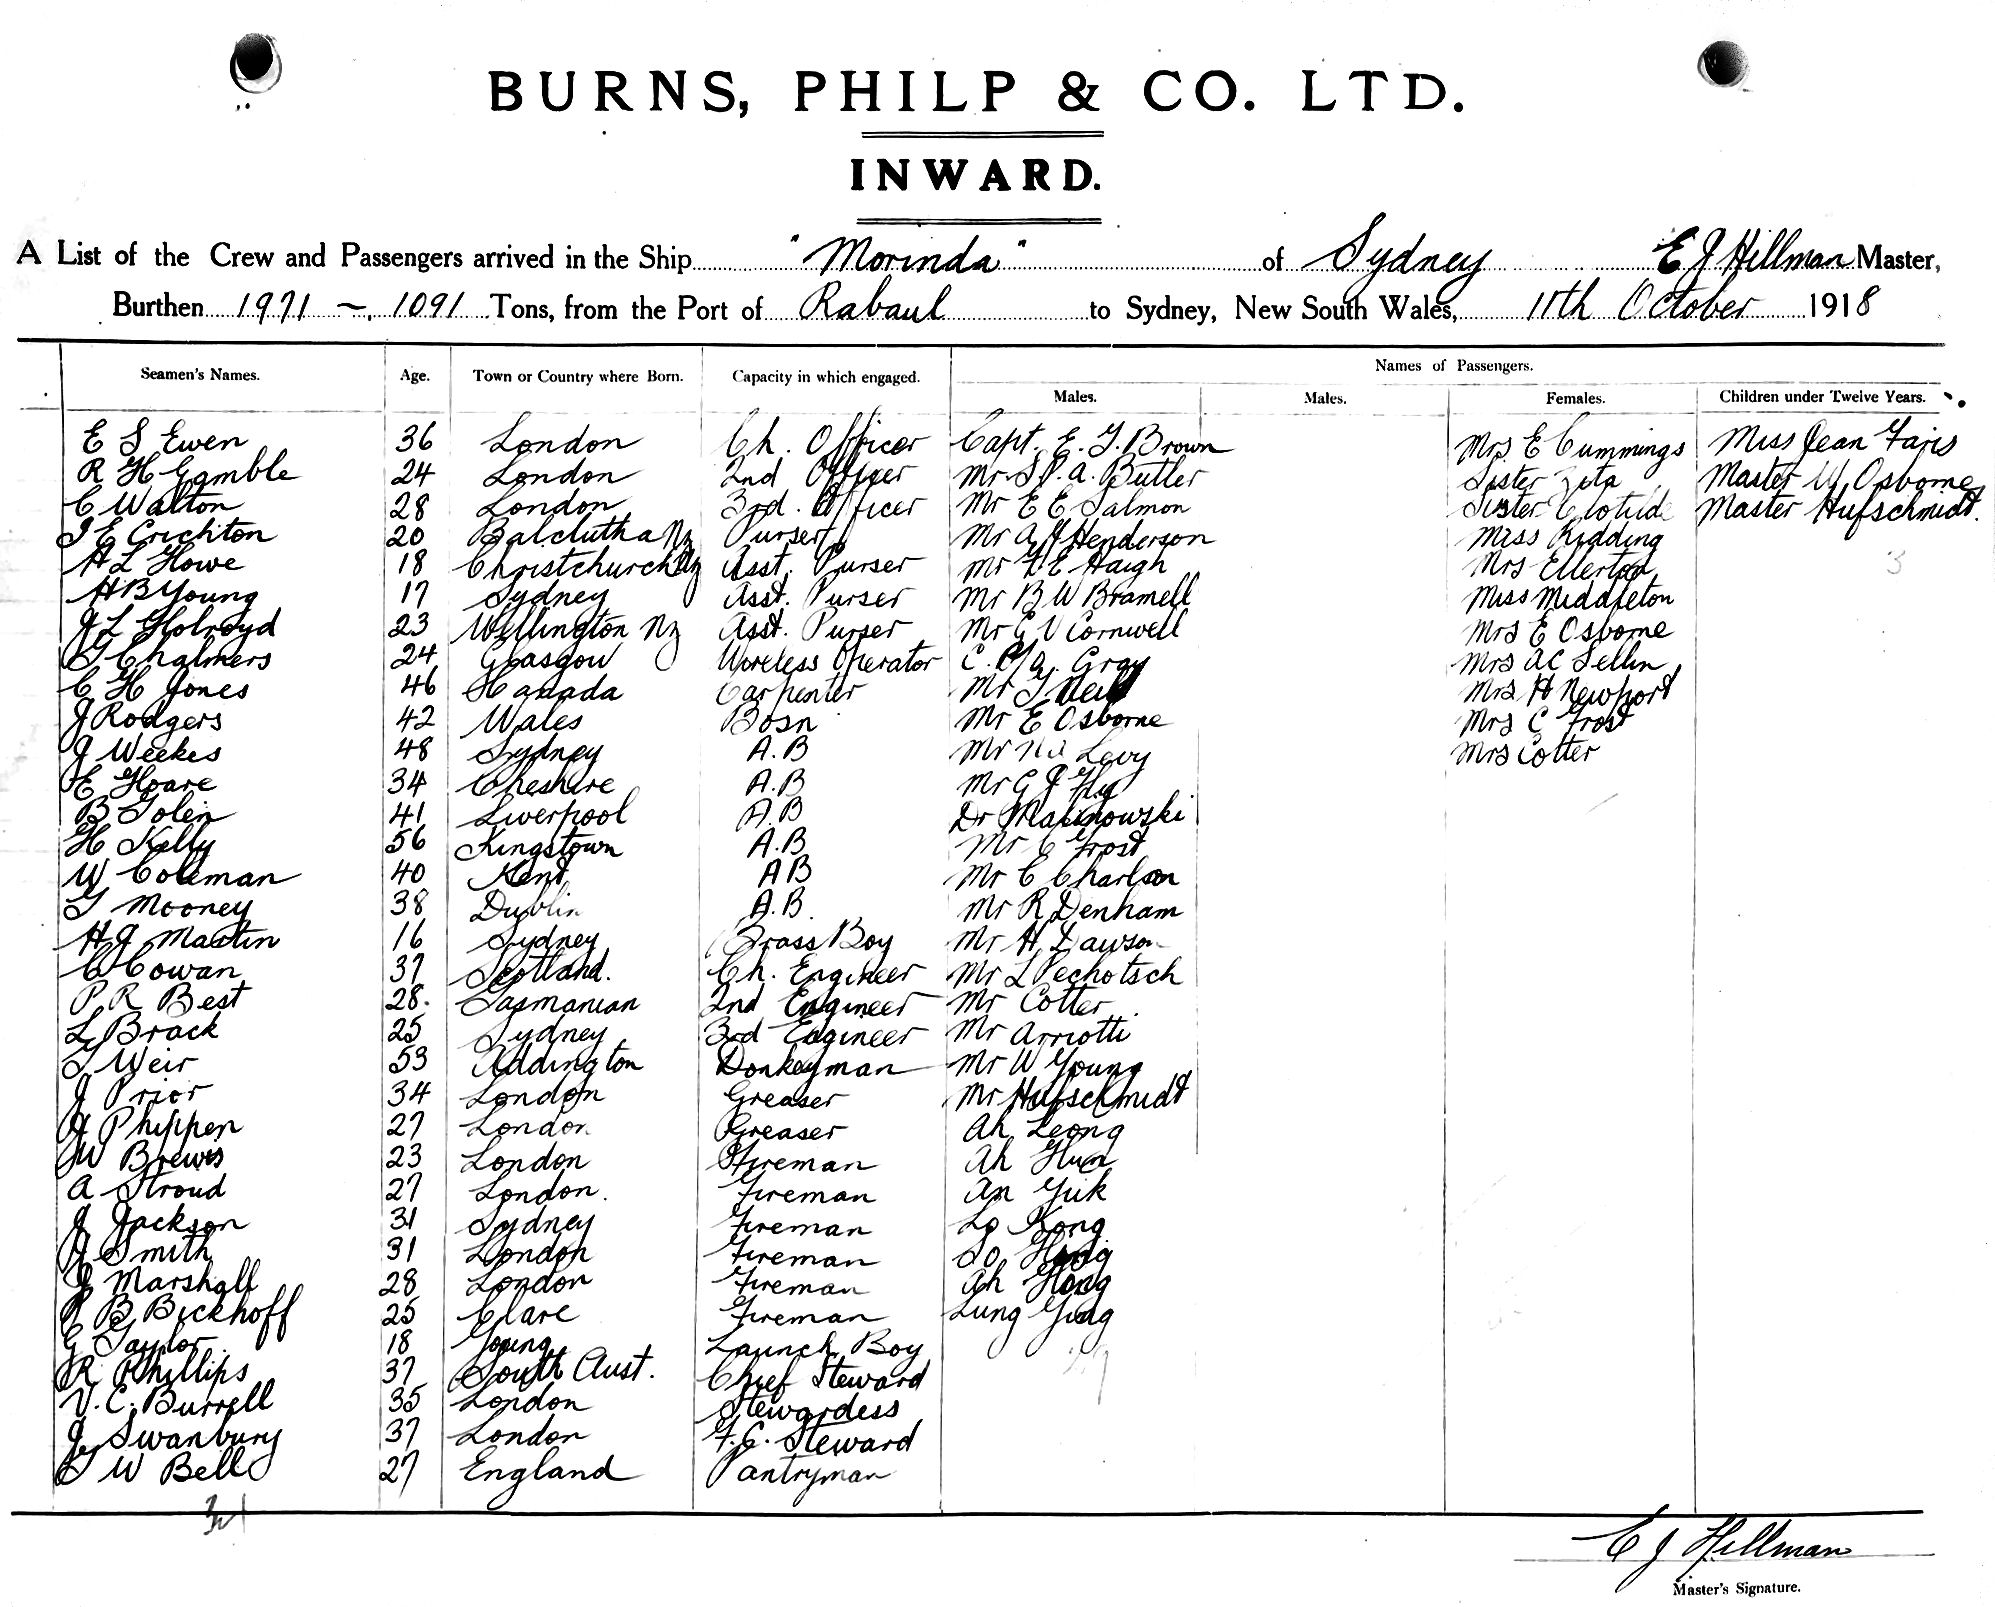 BURNS, PHILP & CO. LTD.
INWARD.
A List of the Crew and Passengers arrived in the Ship "Morinda" of Sydney E J Hillman Master,
Burthen 1971 ~ 1091 Tons, from the Port of Rabaul to Sydney, New South Wales, 11th October 1918
Names of Passengers.
Seamen's Names. Age. Town or Country where Born. Capacity in which engaged. Males. Males. Females. Children under Twelve Years.
E S Ewen 36 London Ch. Officer Capt. E. T. Brown Mrs E Cummings Miss Jean Faris
R H Gamble 24 London 2nd Officer Mr Butler Sister Zita Master W Osborne
C Walton 28 London 3rd. Officer Mr E E Salmon Sister Clotilde Master Hufschmidt.
J E Crichton 20 Balclutha NZ Purser Mr A J Henderson Miss Ridding
H L Howe 18 Christchurch NZ Asst. Purser Mr F E Haigh Mrs Ellerton
H B Young 17 Sydney Asst. Purser Mr B W Bramell Miss Middleton
J L Holroyd 23 Wellington NZ Asst. Purser Mr G V Cornwell Mrs E Osborne
T Chalmers 24 Glasgow Wireless Operator Gray Mrs A C Sellin
C H Jones 46 Canada Carpenter Mr T Neill Mrs H Newport
J Rodgers 42 Wales Bosn Mr E Osborne Mrs C Frost
J Weekes 48 Sydney A.B Mr Levy Mrs Cotter
E Hoare 34 Cheshire A.B Mr G J Fly
B Tolen 41 Liverpool A.B Dr Malinowski
H Kelly 56 Kingstown A.B Mr C Frost
W Coleman 40 Kent A B Mr C Charlson
T Mooney 38 Dublin A.B. Mr R Denham
H J Martin 16 Sydney Brass Boy Mr H Dawson
C Cowan 37 Scotland. Ch. Engineer Mr L Pechotsch
P R Best 28. Tasmanian 2nd Engineer Mr Cotter
L Brack 25 Sydney 3rd Engineer Mr Arriotti
T Weir 53 Addington Donkeyman Mr W Young
J Prior 34 London Greaser Mr Hufschmidt
J Phippen 27 London Greaser Ah Leong
W Brewis 23 London Fireman Ah Hun
A Stroud 27 London. Fireman Ah Yuk
J Jackson 31 Sydney Fireman Lo Kong
J Smith 31 London Fireman
J Marshall 28 London Fireman Ah Hong
P B Bickhoff 25 Clare Fireman Lung Ying
G Taylor 18 Young Launch Boy
R Phillips 37 South Aust. Chief Steward
V. C. Burrell 35 London Stewardess
J Swanbury 37 London F.C. Steward
T W Bell 27 England Pantryman
E J Hillman
Master's Signature.